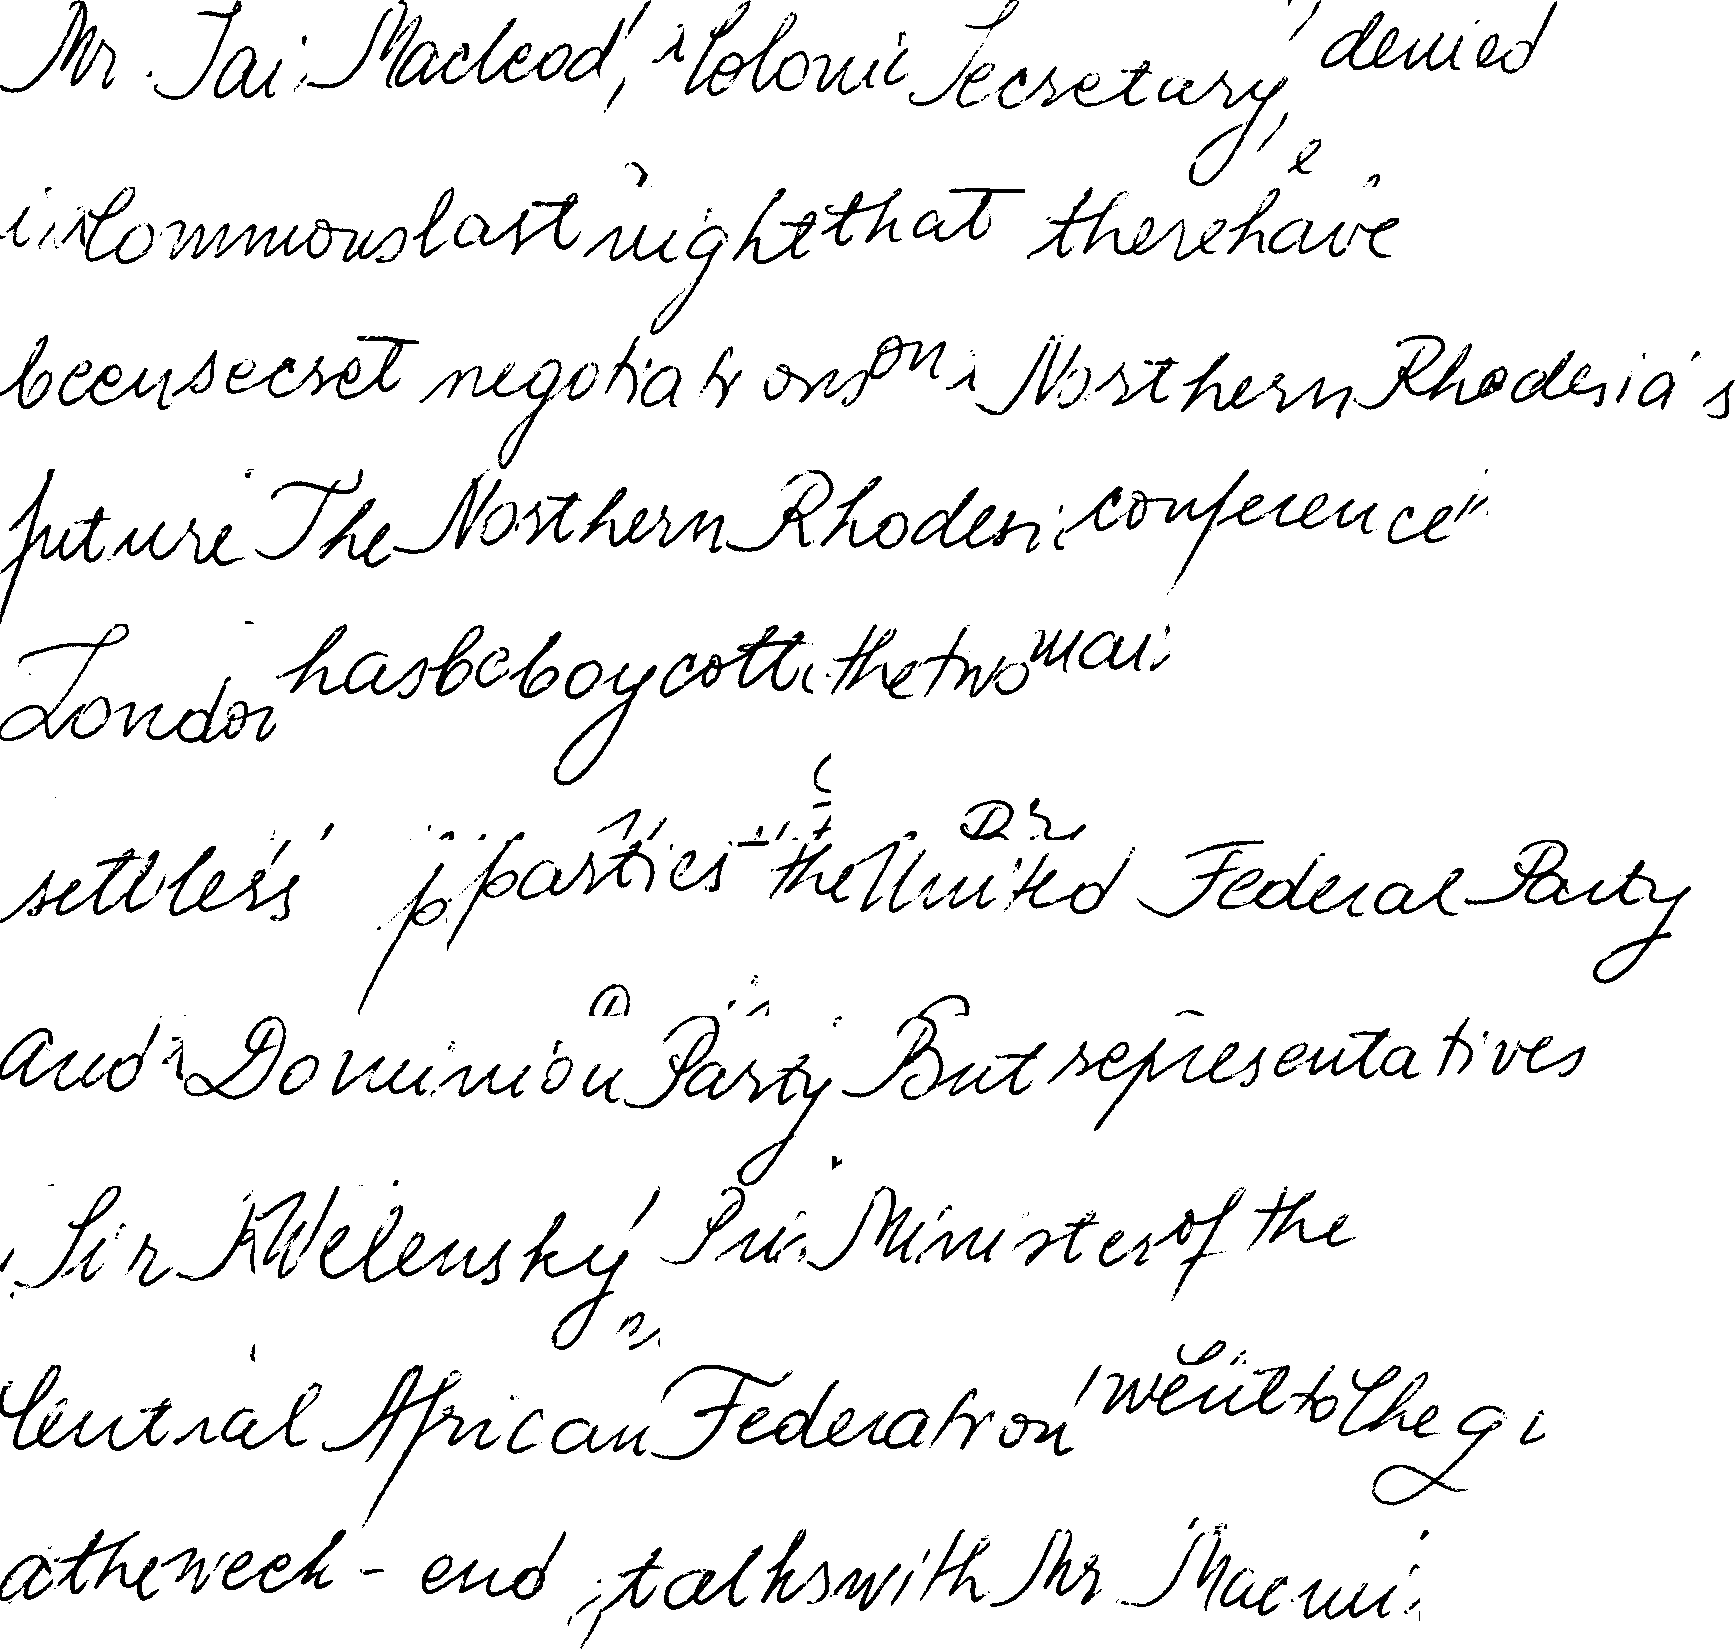 Mr. Iai Macleod, Coloni Secretary, denied
i Commons last night that there have
been secret negotiations on Northern Rhodesia's
future The Northern Rhodesi conference
London has be boycott the two mai
settlers' parties - the United Federal Party
and Dominion Party But representatives
Sir Welensky, Pri Minister of the
Central African Federation, went to Che
a the week-end talks with Mr Macmi